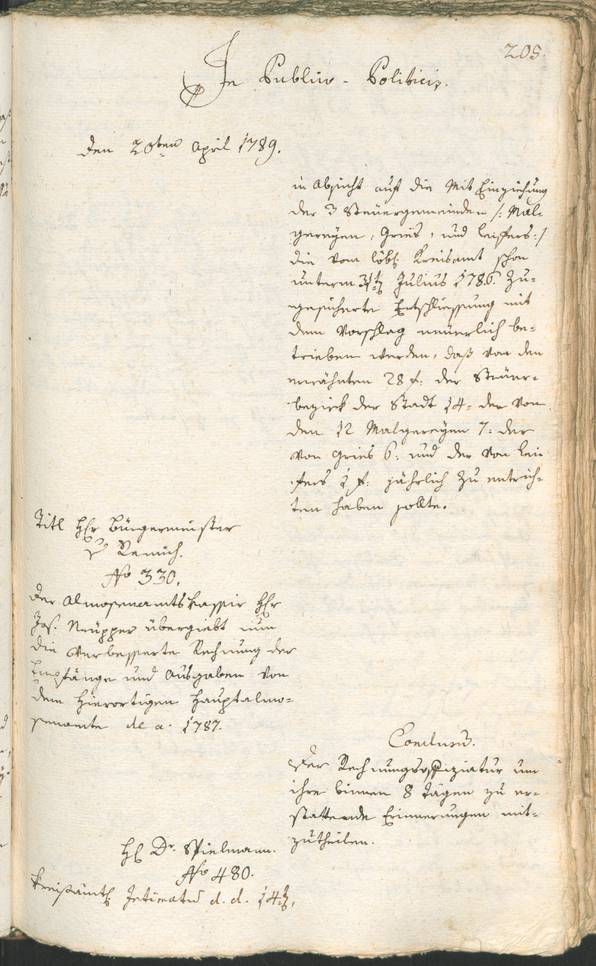 205.
In Publico-Politicis.
Den 20ten April 1789.
in Absicht auf die Mit Einziehung
der 3 Steuergemeinden /: Mal-
greyen, Gries, und Leifers :/
die vom löbl. Kreisamt schon
unterm 31t Julius 1786 zu-
gesicherte Entschliessung mit
dem Vorschlag neuerlich be-
trieben werden, daß von den
erwähnten 28 f: der Steuer-
bezirk der Stadt 14: der von
den 12 Malgreyen 7: der
von Gries 6: und der von Lei-
fers 1 f: jährlich zu entrich-
ten haben sollte.
Titl Hr Bürgermeister
v Remich.
No 330.
Der Almosenamts Kassir Hr
Jos. Knüpper übergiebt nun
die verbesserte Rechnung der
Empfänge und Ausgaben von
dem hierortigen Hauptalmo-
senamte de a. 1787.
Conclusum.
Der Rechnungsoffiziatur um
ihre binnen 8 Tägen zu er-
stattende Erinnerungen mit-
zutheilen.
Hr Dr. Spielmann.
No 480.
Kreisämtl Intimatum d. d. 14t,